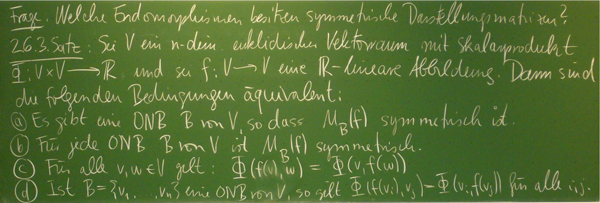 Frage. Welche Endomorphismen besitzen symmetrische Darstellungsmatrizen?
2.6.3. Satz: Sei V ein n-dim. euklidischer Vektorraum mit Skalarprodukt
Φ: V×V → ℝ und sei f: V → V eine ℝ-lineare Abbildung. Dann sind
die folgenden Bedingungen äquivalent:
(a) Es gibt eine ONB B von V, so dass M_B(f) symmetrisch ist.
(b) Für jede ONB B von V ist M_B(f) symmetrisch.
(c) Für alle v, w ∈ V gilt: Φ(f(v), w) = Φ(v, f(w))
(d) Ist B = {v₁, ..., vₙ} eine ONB von V, so gilt Φ(f(vᵢ), vⱼ) = Φ(vᵢ, f(vⱼ)) für alle i, j.